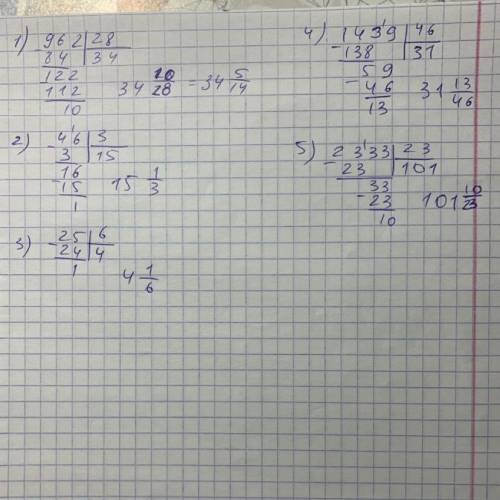 1) 962 | 28
- 84 | 34
122
112
10
34 10/28 = 34 5/14
2) 46 | 3
- 3 | 15
16
- 15
1
15 1/3
3) 25 | 6
- 24 | 4
1
4 1/6
4) 1439 | 46
- 138 | 31
59
- 46
13
31 13/46
5) 2333 | 23
- 23 | 101
33
- 23
10
101 10/23